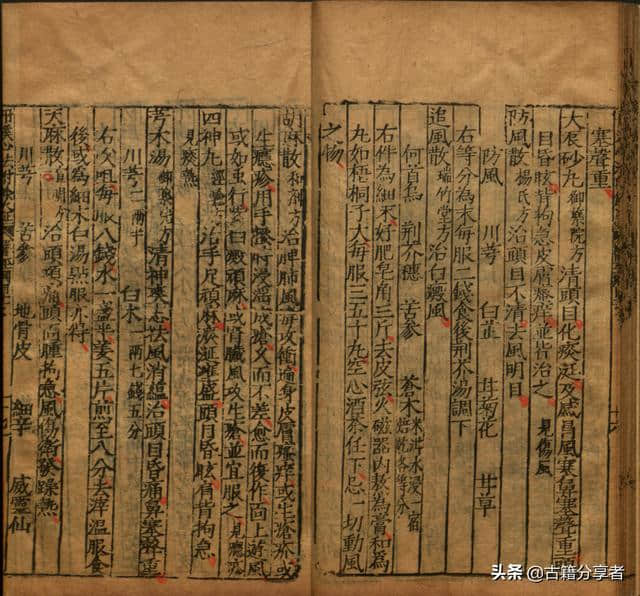 塞聲重
大辰砂丸御藥院方清頭目化痰涎及感冒風寒鼻塞聲重頭
目昏眩肯拘急皮膚瘙痒並皆治之見傷風
防風散楊氏方治頭目不清去風明目
防風 川芎 白芷 甘菊花 甘草
右等分為末每服二錢食後荆芥湯調下
追風散瑞竹堂方治白癜風
何首烏 荆芥穗 苦參 蒼朮米泔水浸一宿焙乾各等分
右件為細末好肥皂角三斤去皮弦火磁器内熬為膏和為
丸如梧桐子大每服三五十九空心酒茶任下忌一切動風
之物
胡麻散和劑方治脾肺風毒攻衝遍身皮膚瘙痒或生瘡疥或
生癮疹用手搔時浸溜成瘡久而不差愈而復作面上遊風
或如虫行紫白癜頑麻或腎臟風攻生瘡並宜服之見癮疹
四神丸 治手足頑麻痰涎壅盛頭目昏眩肩背拘急
見痰熱
芎朮湯御藥院方清神爽志祛風消蘊治頭目昏痛鼻塞聲重
川芎二兩半 白朮二兩七錢五分
右㕮咀每服八錢水一盞半姜五片煎至八分去滓溫服食
後或為細末白湯點服亦得
天麻散宣明方治頭項痛頭面腫拘急風傷衛發躁熱
川芎 苦參 地骨皮 細辛 威靈仙
头条 @古籍分享者